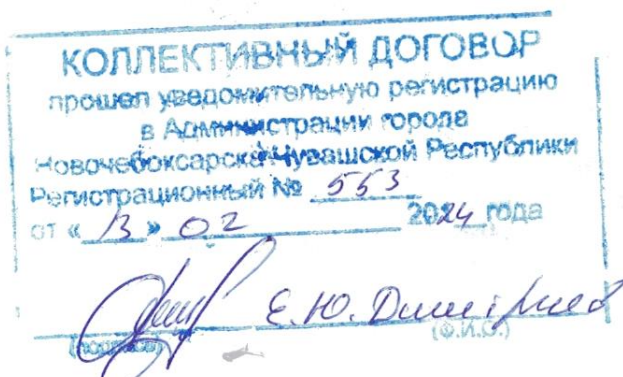 КОЛЛЕКТИВНЫЙ ДОГОВОР
прошел уведомительную регистрацию
в Администрации города
Новочебоксарска Чувашской Республики
Регистрационный № 553
от « 13 » 02 2024 года
Е.Ю. Дмитриева
(подпись) (Ф.И.О.)